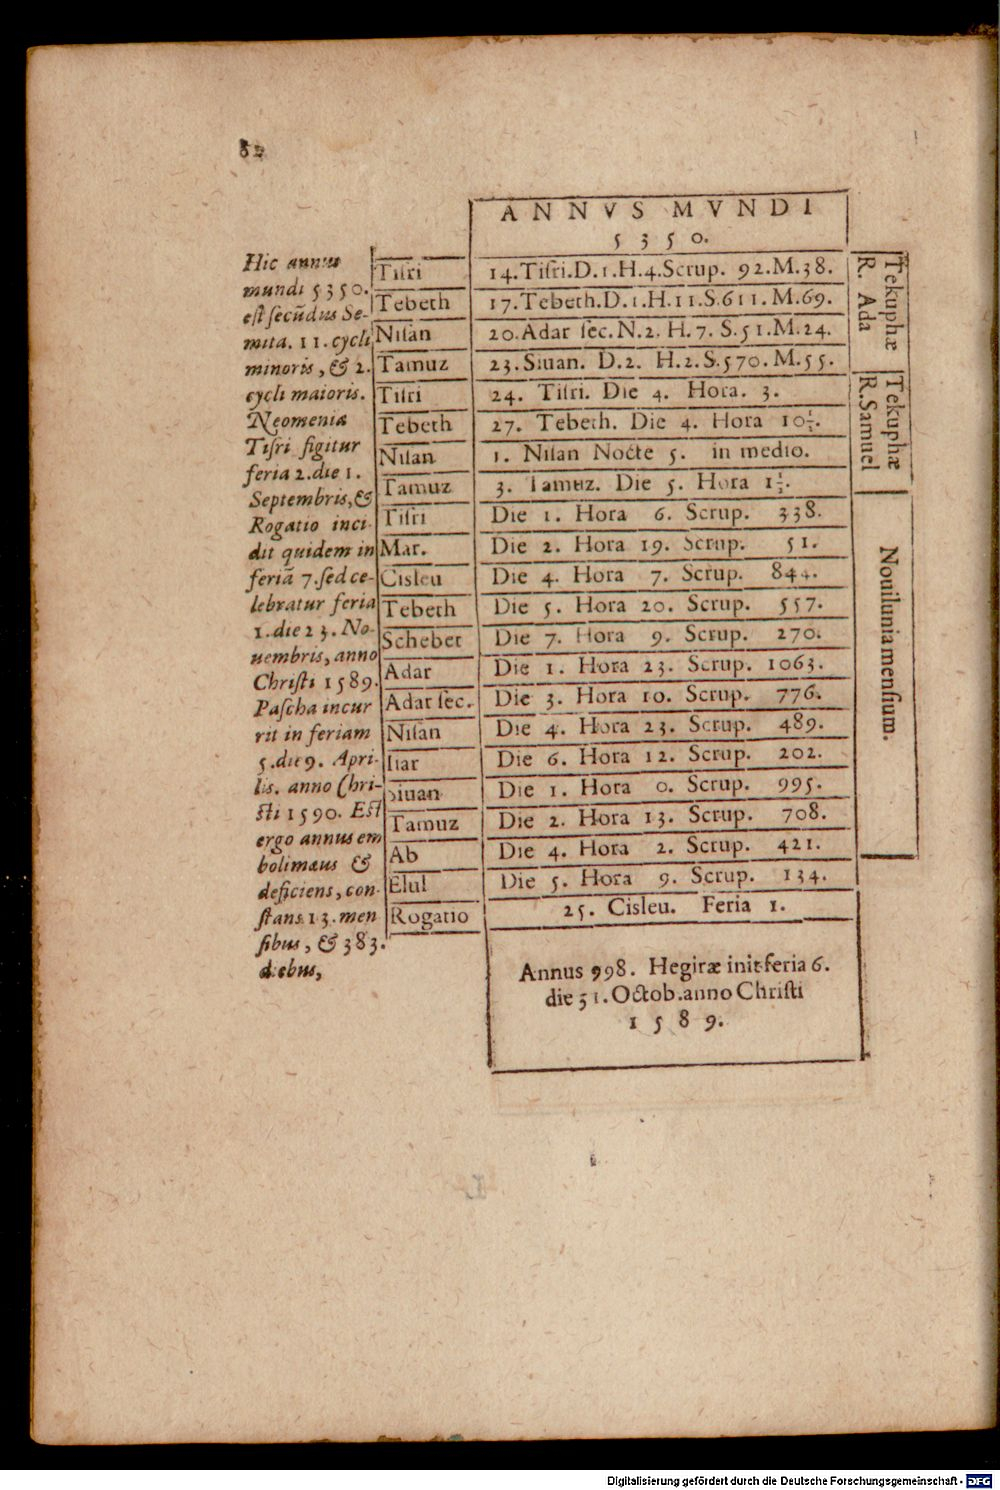 82
Hic annus
mundi 5350.
est secũdus Se-
mita. 11. cycli
minoris, & 2.
cycli maioris.
Neomenia
Tisri figitur
feria 2. die 1.
Septembris, &
Rogatio inci-
dit quidem in
feriã 7. sed ce-
lebratur feria
1. die 23. No-
uembris, anno
Christi 1589.
Pascha incur
rit in feriam
5. die 9. Apri-
lis. anno Chri-
sti 1590. Est
ergo annus em
bolimæus &
deficiens, con-
stans 13. men
sibus, & 383.
diebus,
ANNVS MVNDI
5350.
Tisri 14.Tisri.D.1.H.4.Scrup. 92.M.38.
Tebeth 17.Tebeth.D.1.H.11.S.611.M.69.
Nisan 20.Adar sec.N.2. H.7. S.51.M.24.
Tamuz 23.Siuan. D.2. H.2.S.570.M.55.
Tisri 24. Tisri. Die 4. Hora. 3.
Tebeth 27. Tebeth. Die 4. Hora 10½.
Nisan 1. Nisan Nocte 5. in medio.
Tamuz 3. Tamuz. Die 5. Hora 1½.
Tisri Die 1. Hora 6. Scrup. 338.
Mar. Die 2. Hora 19. Scrup. 51.
Cisleu Die 4. Hora 7. Scrup. 844.
Tebeth Die 5. Hora 20. Scrup. 557.
Schebet Die 7. Hora 9. Scrup. 270.
Adar Die 1. Hora 23. Scrup. 1063.
Adar sec. Die 3. Hora 10. Scrup. 776.
Nisan Die 4. Hora 23. Scrup. 489.
Iiar Die 6. Hora 12. Scrup. 202.
Siuan Die 1. Hora 0. Scrup. 995.
Tamuz Die 2. Hora 13. Scrup. 708.
Ab Die 4. Hora 2. Scrup. 421.
Elul Die 5. Hora 9. Scrup. 134.
Rogatio 25. Cisleu. Feria 1.
Annus 998. Hegiræ init feria 6.
die 31. Octob. anno Christi
1589.
Tekuphæ
R. Ada
Tekuphæ
R. Samuel
Nouilunia mensium.
Digitalisierung gefördert durch die Deutsche Forschungsgemeinschaft - DFG